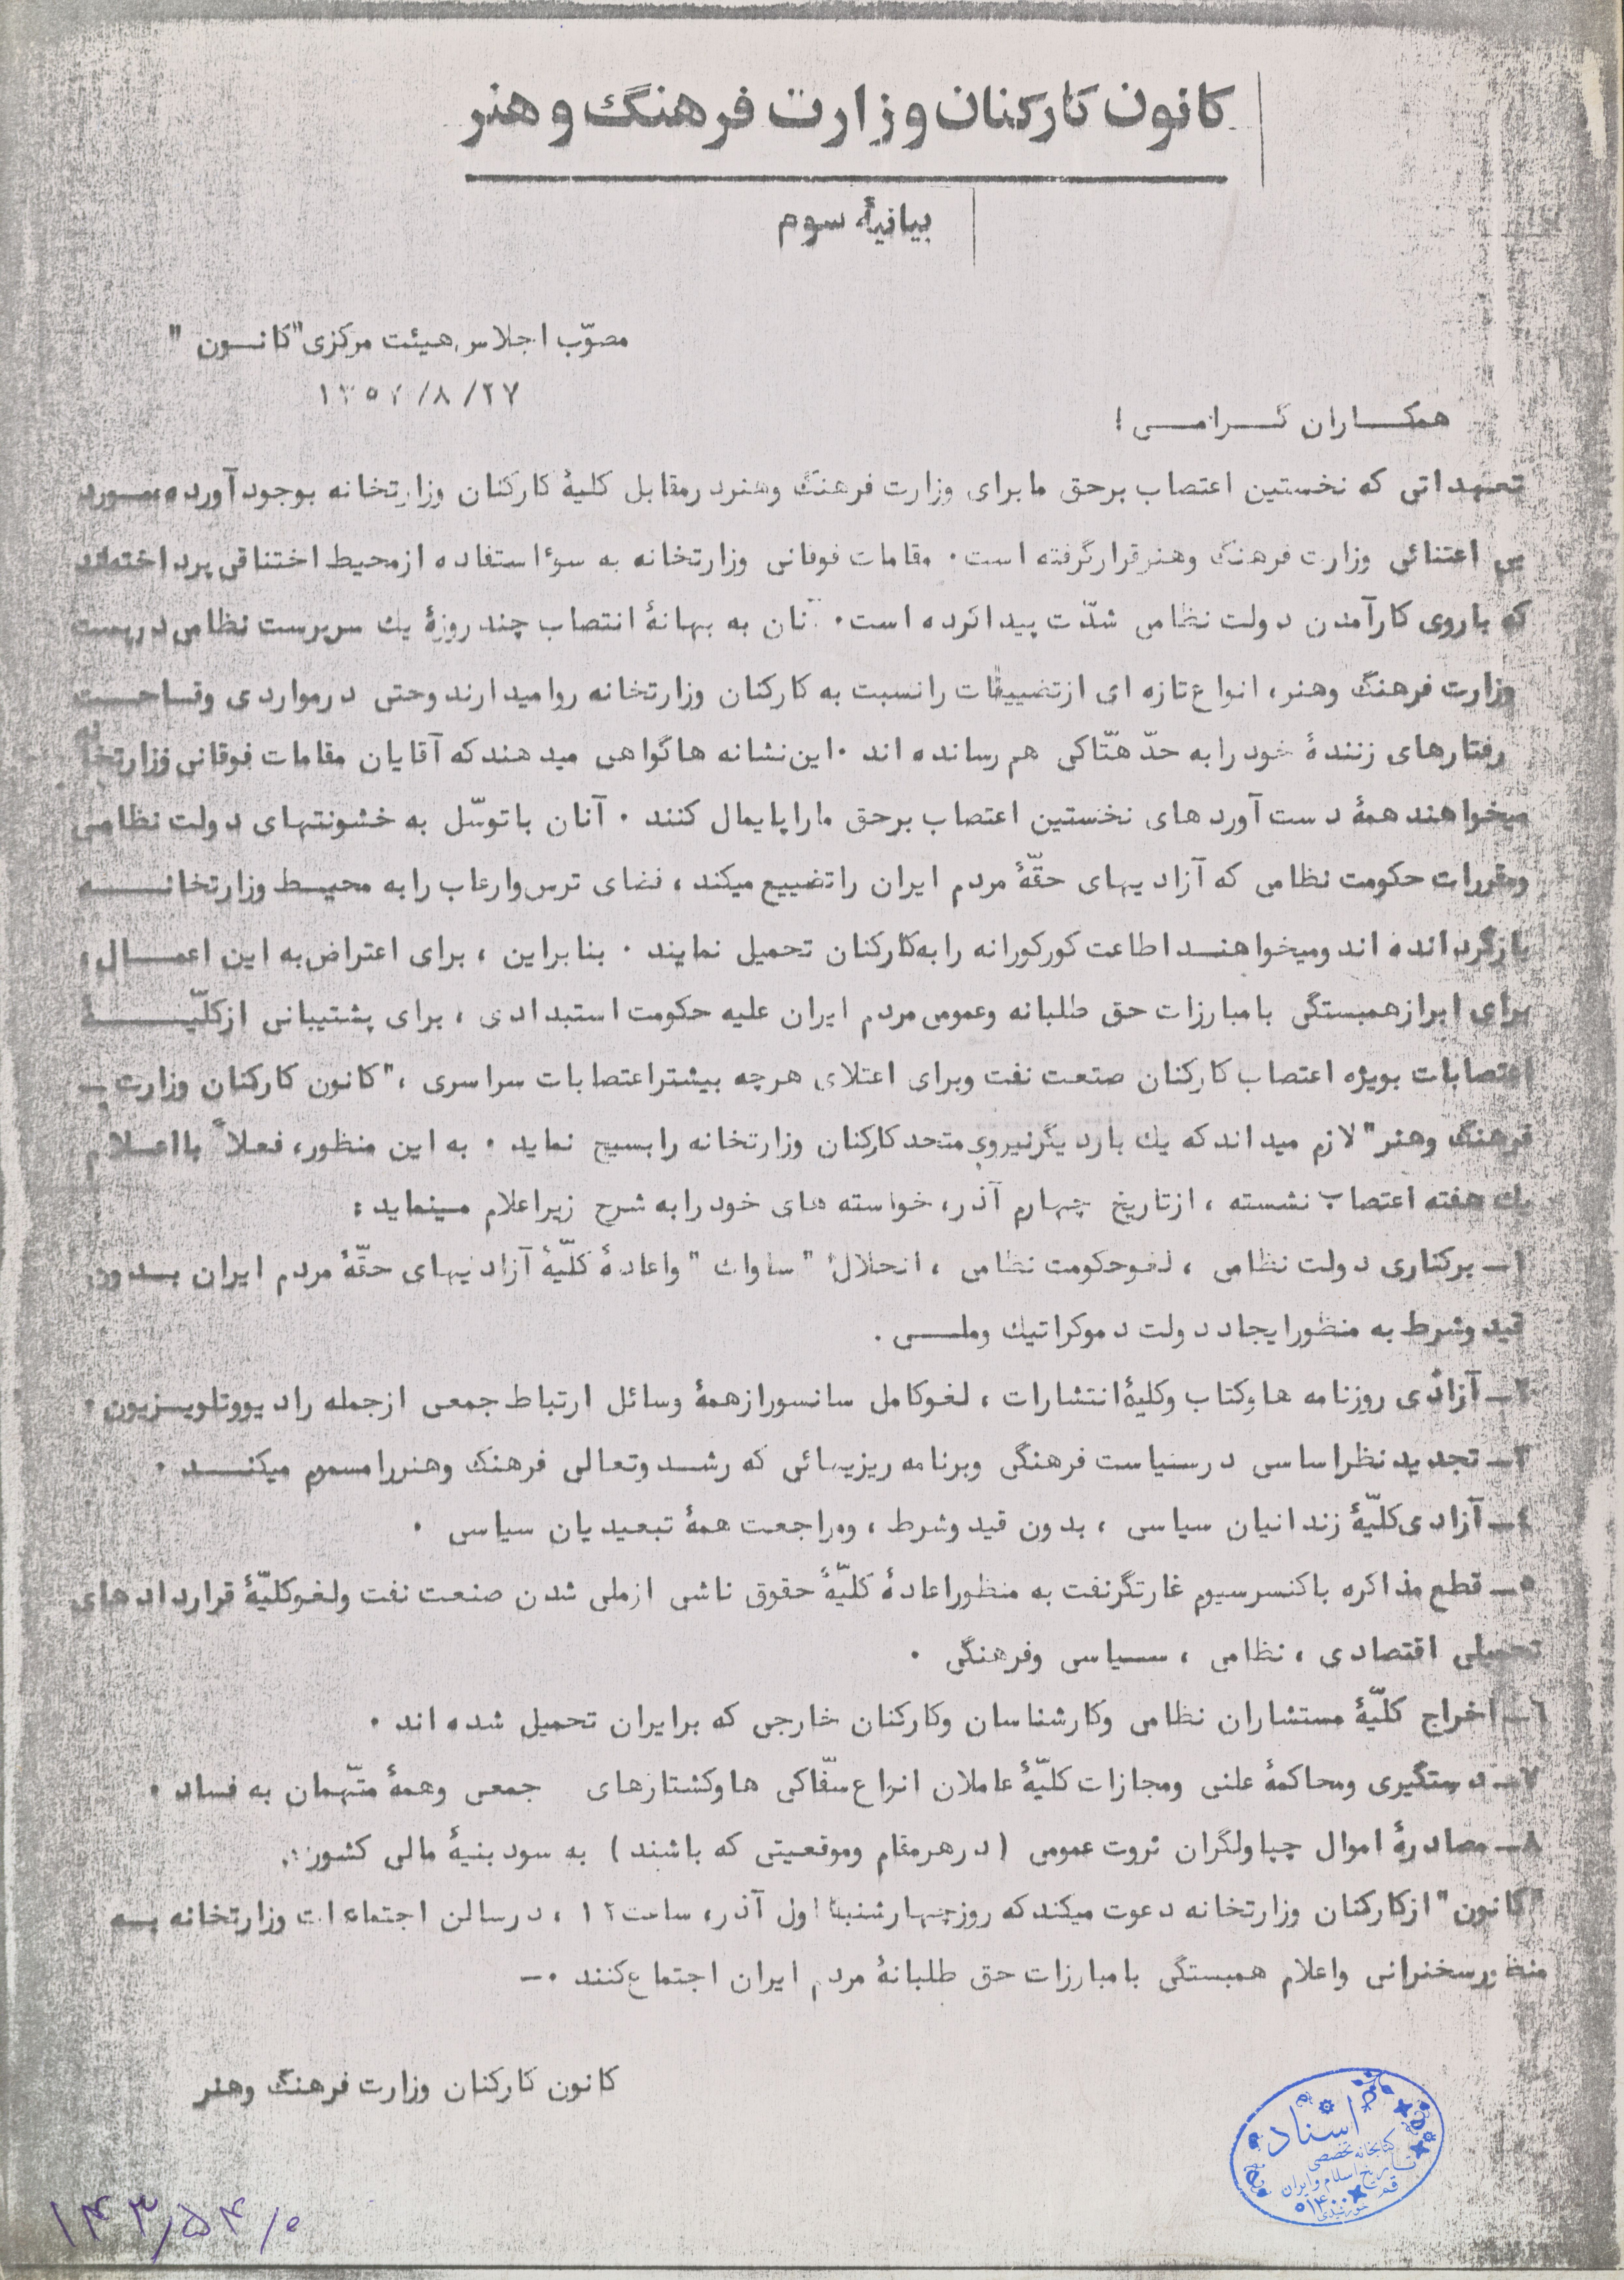 کانون کارکنان وزارت فرهنگ و هنر
بیانیهٔ سوم
مصوّب اجلاس هیئت مرکزی "کانون"
۱۳۵۷/۸/۲۷
همکاران گرامی !
تعهداتی که نخستین اعتصاب برحق ما برای وزارت فرهنگ وهنر درمقابل کلیهٔ کارکنان وزارتخانه بوجود آورده مورد
بی اعتنائی وزارت فرهنگ وهنر قرارگرفته است. مقامات فوقانی وزارتخانه به سوءاستفاده ازمحیط اختناقی پرداخته‌اند
که باروی کارآمدن دولت نظامی شدّت پیداکرده است. آنان به بهانهٔ انتصاب چند روزهٔ یك سرپرست نظامی درپست
وزارت فرهنگ وهنر، انواع تازه ای ازتضییقات رانسبت به کارکنان وزارتخانه روامیدارند وحتی درمواردی وقاحت
رفتارهای زنندهٔ خود رابه حدّ هتّاکی هم رسانده اند . این نشانه هاگواهی میدهندکه آقایان مقامات فوقانی وزارتخانه
میخواهند همهٔ دست آوردهای نخستین اعتصاب برحق ماراپایمال کنند . آنان باتوسّل به خشونتهای دولت نظامی
ومقررات حکومت نظامی که آزادیهای حقّهٔ مردم ایران راتضییع میکند، فضای ترس وارعاب رابه محیط وزارتخانه
بازگردانده اند ومیخواهند اطاعت کورکورانه رابه‌کارکنان تحمیل نمایند . بنابراین ، برای اعتراض به این اعمال،
برای ابرازهمبستگی بامبارزات حق طلبانه وعمومی مردم ایران علیه حکومت استبدادی ، برای پشتیبانی ازکلّیهٔ
اعتصابات بویژه اعتصاب کارکنان صنعت نفت وبرای اعتلای هرچه بیشتراعتصابات سراسری ، "کانون کارکنان وزارت ـ
فرهنگ وهنر" لازم میداندکه یك باردیگرنیروی متحدکارکنان وزارتخانه رابسیج نماید . به این منظور، فعلاً بااعلام
یك هفته اعتصاب نشسته ، ازتاریخ چهارم آذر، خواسته های خود رابه شرح زیراعلام مینماید :
۱ـ برکناری دولت نظامی ، لغوحکومت نظامی ، انحلال "ساواك" واعادهٔ کلّیهٔ آزادیهای حقّهٔ مردم ایران بدون
قید وشرط به منظورایجاد دولت دموکراتیك وملی .
۲ـ آزادی روزنامه هاوکتاب وکلیهٔ انتشارات ، لغوکامل سانسورازهمهٔ وسائل ارتباط جمعی ازجمله رادیووتلویزیون .
۳ـ تجدیدنظراساسی درسیاست فرهنگی وبرنامه ریزیهائی که رشد وتعالی فرهنگ وهنررامسموم میکند .
٤ـ آزادی کلّیهٔ زندانیان سیاسی ، بدون قید وشرط ، ومراجعت همهٔ تبعیدیان سیاسی .
۵ـ قطع مذاکره باکنسرسیوم غارتگرنفت به منظوراعادهٔ کلیّهٔ حقوق ناشی ازملی شدن صنعت نفت ولغوکلیّهٔ قراردادهای
تحمیلی اقتصادی ، نظامی ، سیاسی وفرهنگی .
٦ـ اخراج کلیّهٔ مستشاران نظامی وکارشناسان وکارکنان خارجی که برایران تحمیل شده اند .
۷ـ دستگیری ومحاکمهٔ علنی ومجازات کلیّهٔ عاملان انواع سفّاکی هاوکشتارهای جمعی وهمهٔ متّهمان به فساد .
۸ـ مصادرهٔ اموال چپاولگران ثروت عمومی (درهرمقام وموقعیتی که باشند) به سود بنیهٔ مالی کشور .
"کانون" ازکارکنان وزارتخانه دعوت میکندکه روزچهارشنبهٔ اول آذر، ساعت ۱۲ ، درسالن اجتماعات وزارتخانه به
منظورسخنرانی واعلام همبستگی بامبارزات حق طلبانهٔ مردم ایران اجتماع کنند .ـ
کانون کارکنان وزارت فرهنگ وهنر
اسناد
کتابخانه تخصصی
تاریخ اسلام و ایران
قم
۱۴۳٫۵۴/۰